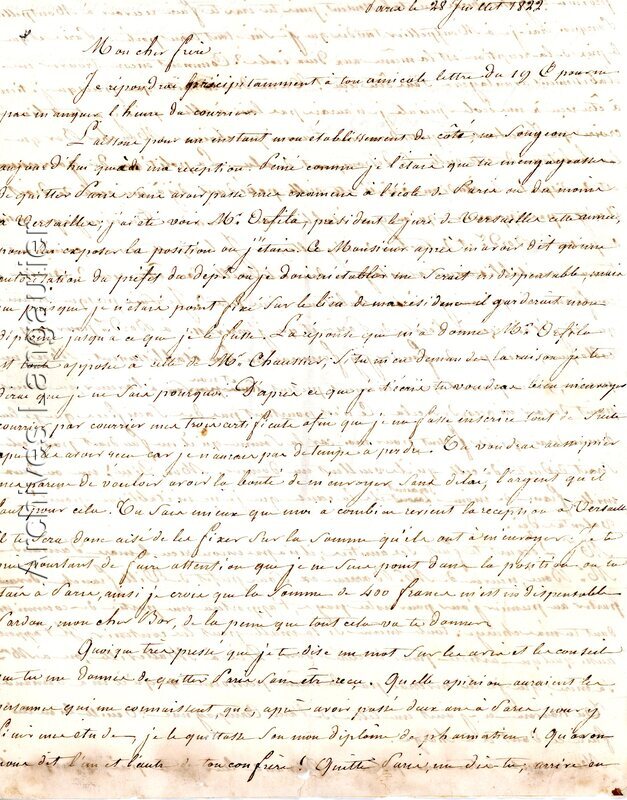 Paris le 28 Juillet 1822.
Mon cher frère
Je répondrai précipitamment à ton amicale lettre du 19 Ct pour ne
pas manquer l'heure du courrier.
Laissons pour un instant mon établissement de côté, ne songeons
aujourd'hui qu'à ma réception. Peiné comme je l'étais que tu m'engageasse
de quitter Paris sans avoir passé mes examens à l'école de Paris ou du moins
à Versailles, j'ai été voir Mr. Orfila, président le jury de Versailles cette année,
pour lui exposer la position où j'étais. Ce Monsieur après m'avoir dit qu'une
autorisation du préfet du dépt. où je dois m'établir me serait indispensable, mais
que puisque je n'étais point fixé sur le lieu de ma résidence il garderait mon
diplome jusqu'à ce que je le fusse. La réponse que m'a donné Mr. Orfila
est toute opposée à celle de Mr. Chaussier; si tu m'en demandes la raison je te
dirai que je ne sais pourquoi. D'après ce que je t'écris tu voudras bien m'envoyer
courrier par courrier mes trois certificats afin que je me fasse inscrire tout de suite
après les avoir reçu car je n'aurai pas de temps à perdre. Tu voudras aussi prier
mes parens de vouloir avoir la bonté de m'envoyer sans délai, l'argent qu'il
faut pour cela. Tu sais mieux que moi à combien revient la réception à Versailles
il te sera donc aisé de les fixer sur la somme qu'ils ont à m'envoyer. Je te
prie pourtant de faire attention que je ne suis point dans la position où tu
étais à Paris, ainsi je crois que la somme de 400 francs m'est indispensable
Pardon, mon cher Bor, de la peine que tout cela va te donner.
Quoique très pressé que je te dise un mot sur les avis et les conseils
que tu me donnes de quitter Paris sans être reçu. Quelle opinion auraient les
personnes qui me connaissent, que, après avoir passé deux ans à Paris pour y
finir mes études, je le quittasse sans mon diplome de pharmacien! Qu'avons
nous dit l'un et l'autre de ton confrère! Quitte Paris, me dis-tu; arrive ou
Archives Langautier